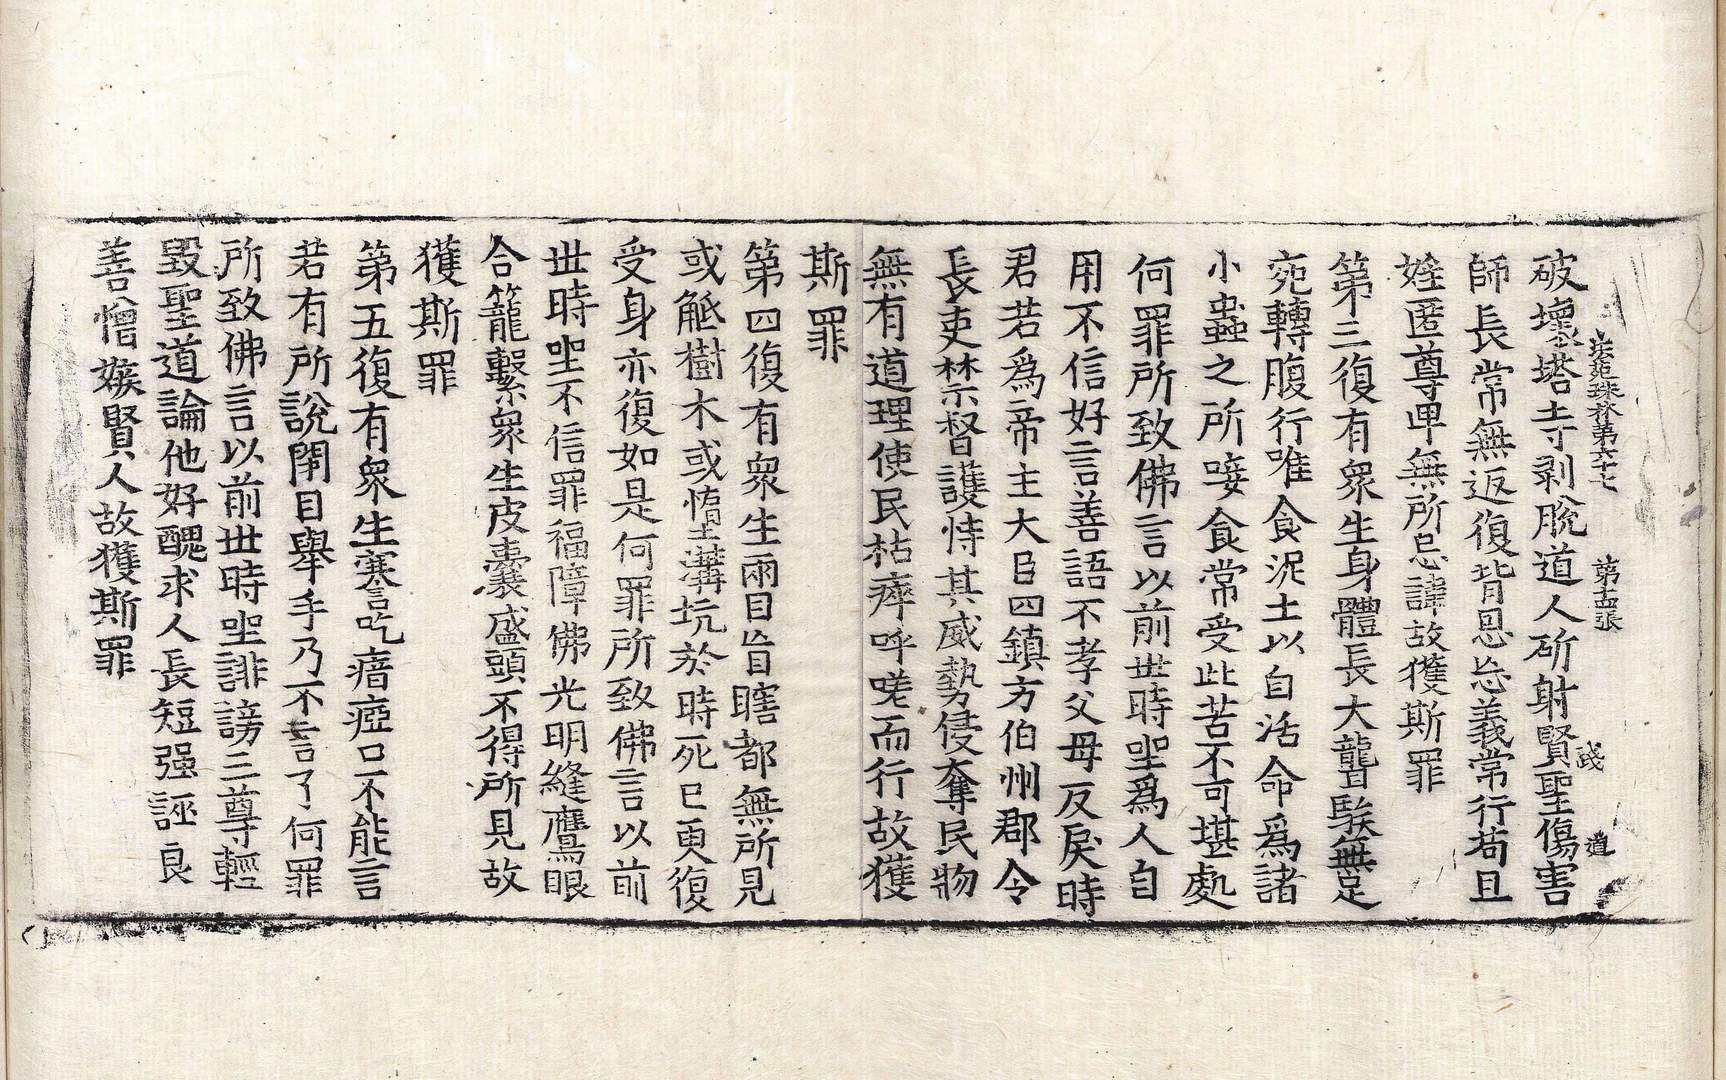 法苑珠林第六十七 第十五張 踐 道
破壞塔寺剥脫道人斫射賢聖傷害
師長常無返復背恩忘義常行苟且
婬匿尊卑無所忌諱故獲斯罪
第三復有衆生身體長大聾騃無足
宛轉腹行唯食泥土以自活命爲諸
小蟲之所唼食常受此苦不可堪處
何罪所致佛言以前世時坐爲人自
用不信好言善語不孝父母反戾時
君若爲帝主大臣四鎮方伯州郡令
長吏禁督護恃其威勢侵奪民物
無有道理使民枯瘁呼嗟而行故獲
斯罪
第四復有衆生兩目盲瞎都無所見
或觝樹木或墮溝坑於時死已更復
受身亦復如是何罪所致佛言以前
世時坐不信罪福障佛光明縫鷹眼
合籠繫衆生皮囊盛頭不得所見故
獲斯罪
第五復有衆生謇吃瘖瘂口不能言
若有所說閉目舉手乃不言了何罪
所致佛言以前世時坐誹謗三尊輕
毀聖道論他好醜求人長短强誣良
善憎嫉賢人故獲斯罪